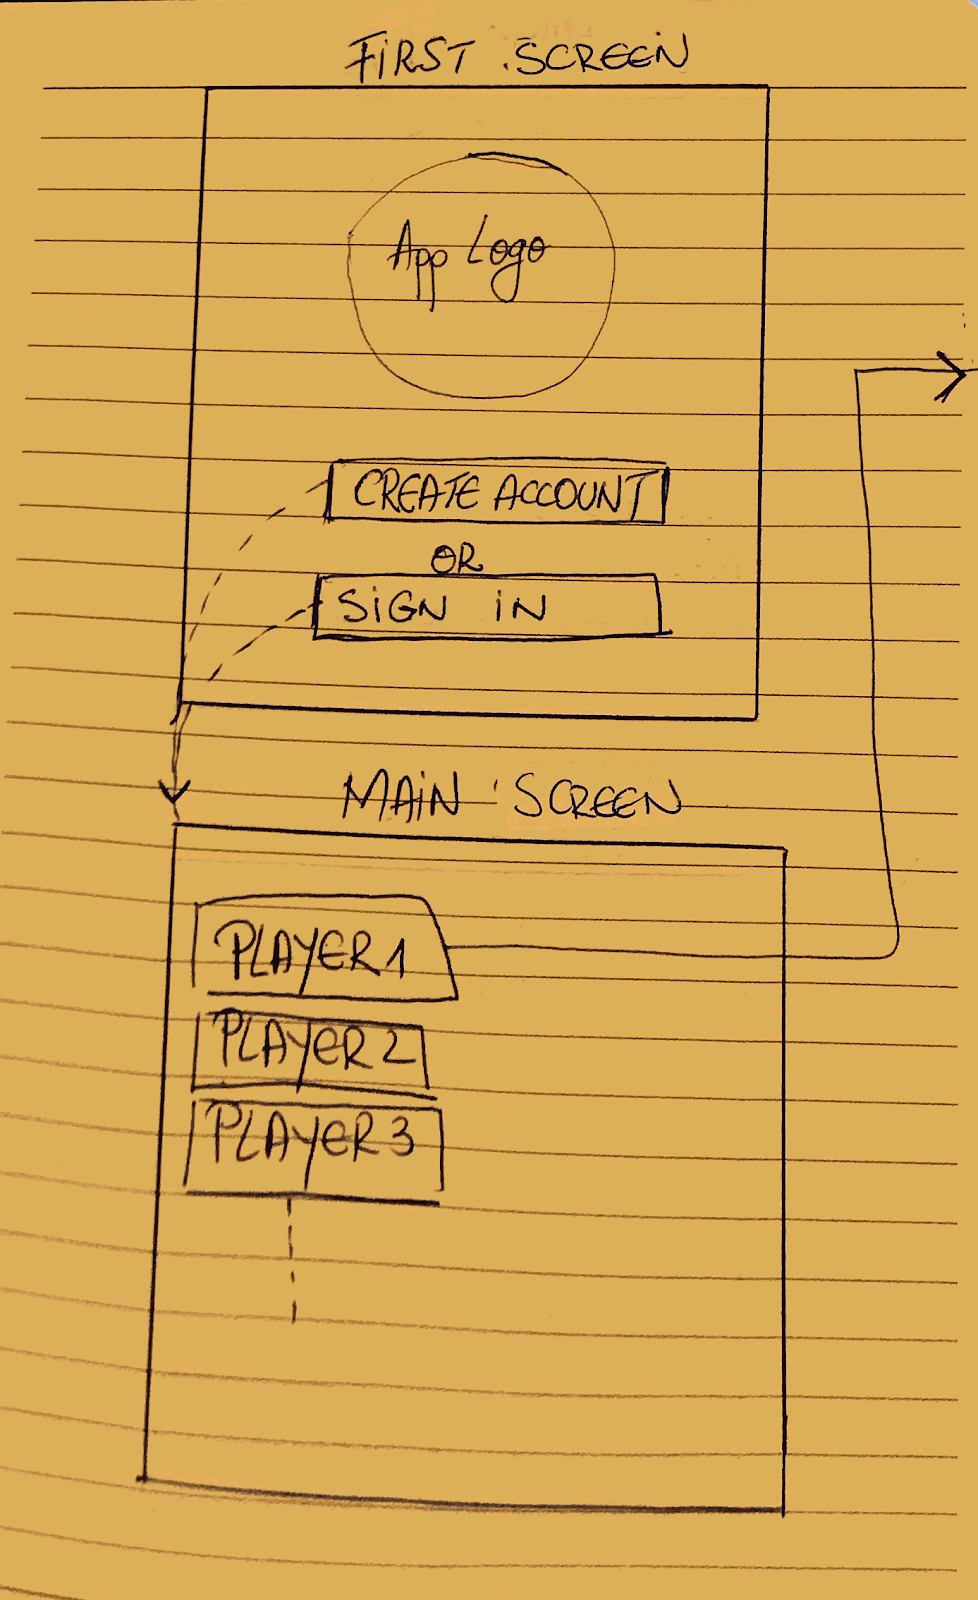 FiRST SCREEN
App Logo
CREATE ACCOUNT
OR
SiGN iN
MAiN SCREEN
PLAYER 1
PLAYER 2
PLAYER 3